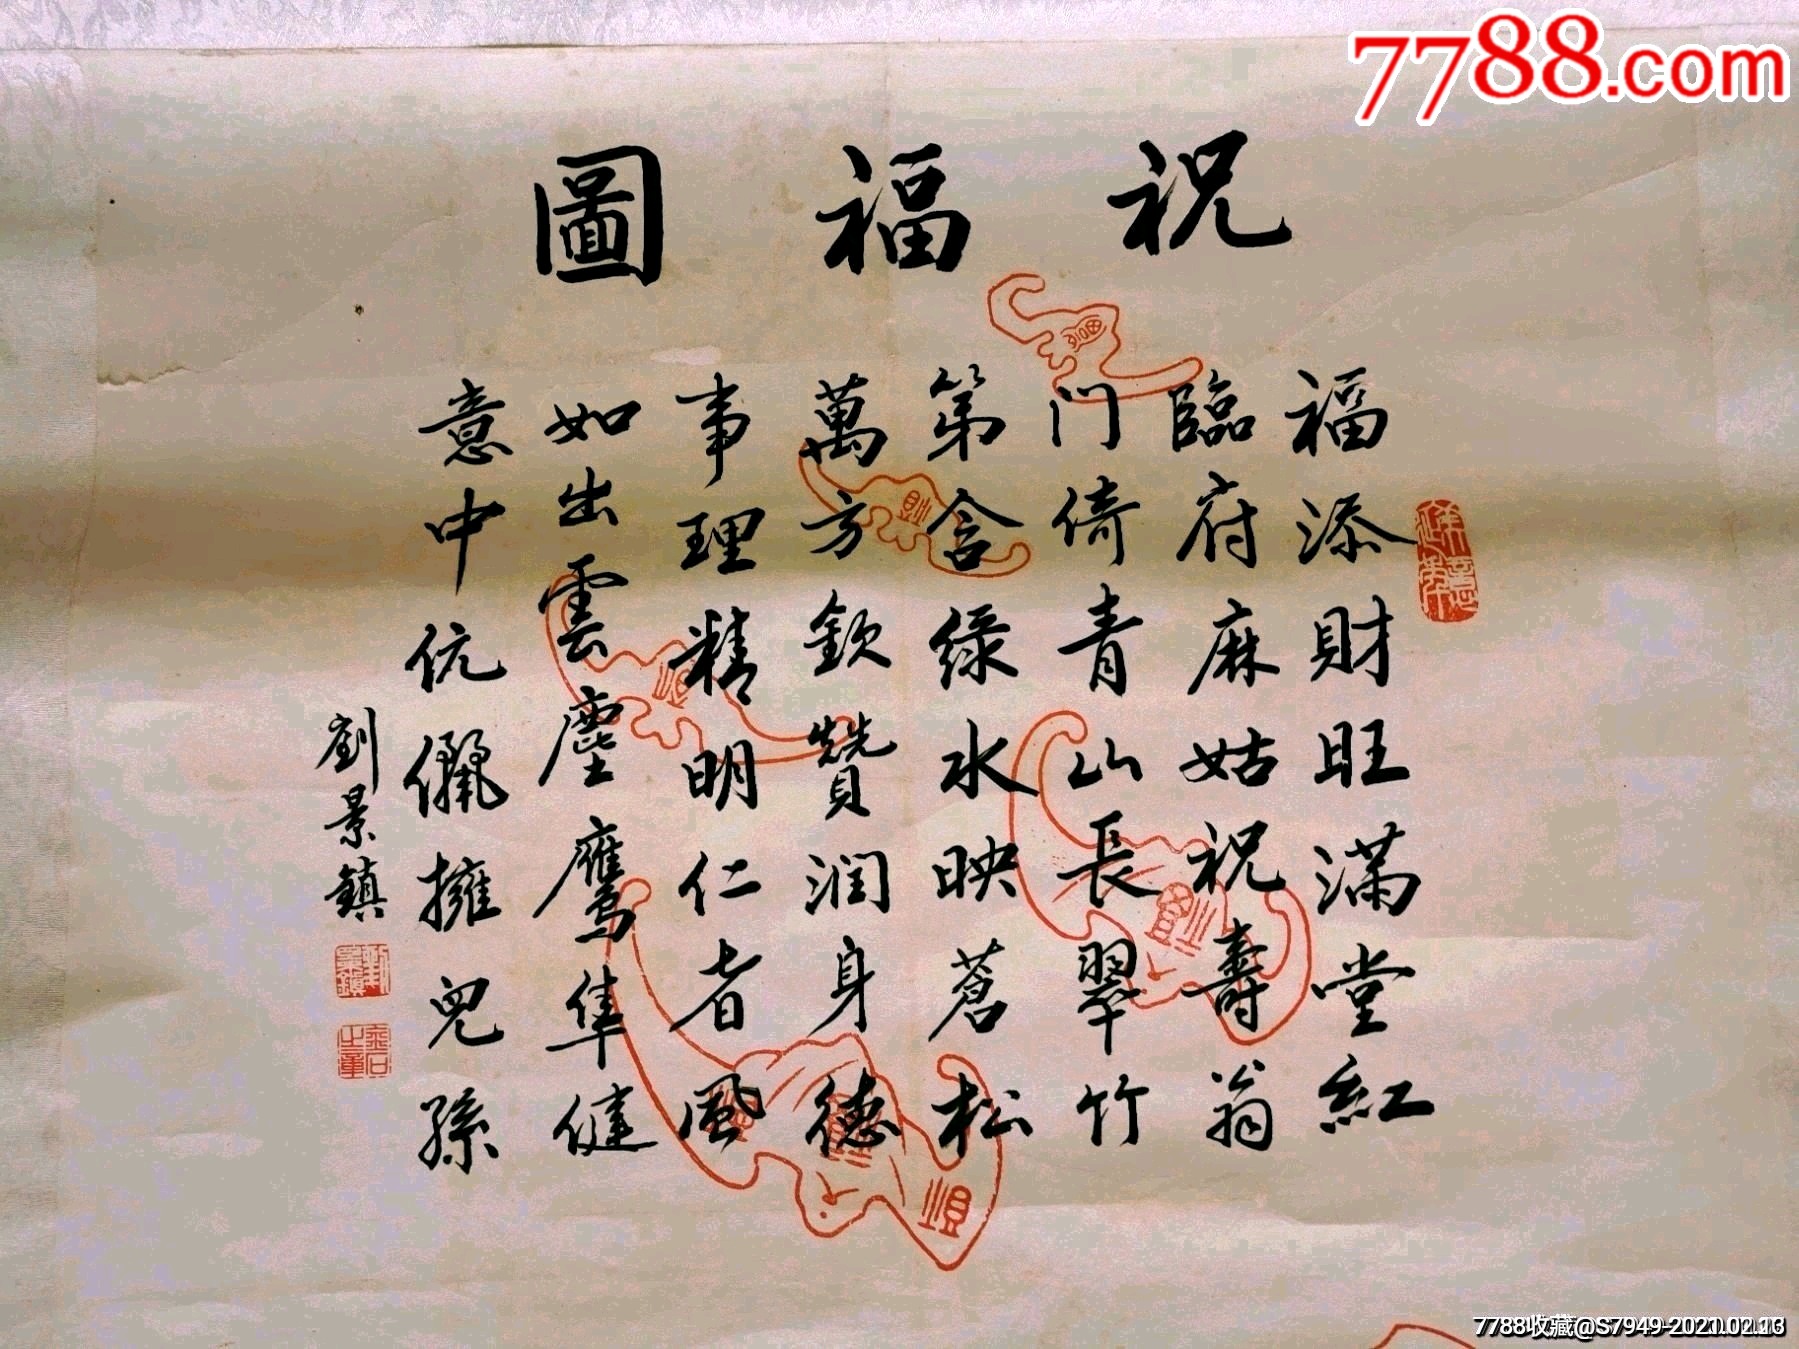 7788.com
祝福圖
福添財旺滿堂紅
臨府麻姑祝壽翁
门倚青山長翠竹
第含绿水映蒼松
萬方欽贊润身德
事理精明仁者風
如出雲塵鷹隼健
意中伉儷擁兒孫
劉景鎮
7788收藏@S7949-2021.02.13